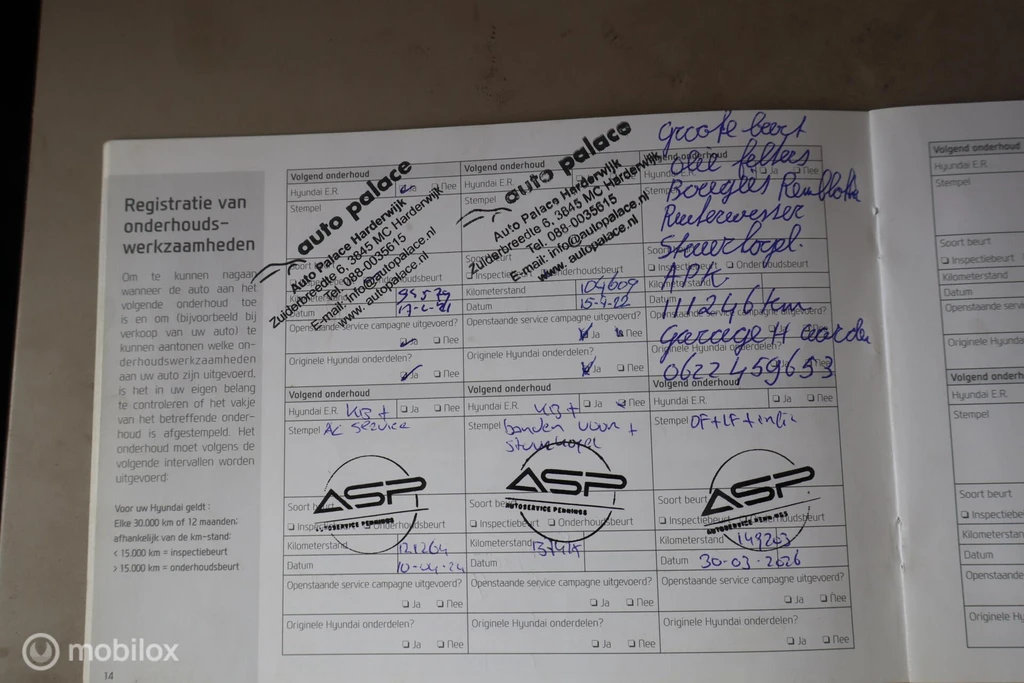 Registratie van
onderhouds-
werkzaamheden
Om te kunnen nagaan
wanneer de auto aan het
volgende onderhoud toe
is en om (bijvoorbeeld bij
verkoop van uw auto) te
kunnen aantonen welke on-
derhoudswerkzaamheden
aan uw auto zijn uitgevoerd,
is het in uw eigen belang
te controleren of het vakje
van het betreffende onder-
houd is afgestempeld. Het
onderhoud moet volgens de
volgende intervallen worden
uitgevoerd:
Voor uw Hyundai geldt :
Elke 30.000 km of 12 maanden;
afhankelijk van de km-stand:
< 15.000 km = inspectiebeurt
> 15.000 km = onderhoudsbeurt
14
Volgend onderhoud
Hyundai E.R. Nee
Stempel
auto palace
Auto Palace Harderwijk
Zuiderbreedte 6, 3845 MC Harderwijk
Tel. 088-0035615
E-mail: info@autopalace.nl
www.autopalace.nl
Datum
Openstaande service campagne uitgevoerd?
Nee
Originele Hyundai onderdelen?
Ja Nee
Volgend onderhoud
Hyundai E.R. Nee
Stempel
auto palace
Auto Palace Harderwijk
Zuiderbreedte 6, 3845 MC Harderwijk
Tel. 088-0035615
E-mail: info@autopalace.nl
www.autopalace.nl
Kilometerstand 104609
Datum 15-4-22
Openstaande service campagne uitgevoerd?
Ja Nee
Originele Hyundai onderdelen?
Ja Nee
Volgend onderhoud
Hyundai Ja Nee
groote beurt
olie felters
Bougies Remblokke
Ruiterwesser
Stuurkogel.
APK
111246 km
garage H
0622459653
Soort
Inspectie Onderhoudsbeurt
Kilometerstand
Datum
Openstaande service campagne uitgevoerd?
Originele Hyundai onderdelen?
Volgend onderhoud
Hyundai E.R. KB + Ja Nee
Stempel AC Service
ASP
AUTOSERVICE PENNINGS
Soort beurt
Inspectiebeurt Onderhoudsbeurt
Kilometerstand 121264
Datum 10-04-24
Openstaande service campagne uitgevoerd?
Ja Nee
Originele Hyundai onderdelen?
Ja Nee
Volgend onderhoud
Hyundai E.R. KB + Ja Nee
Stempel banden voor +
stuurkogel
ASP
AUTOSERVICE PENNINGS
Soort beurt
Inspectiebeurt Onderhoudsbeurt
Kilometerstand
Datum
Openstaande service campagne uitgevoerd?
Ja Nee
Originele Hyundai onderdelen?
Ja Nee
Volgend onderhoud
Hyundai E.R. Ja Nee
Stempel OF+LF+
ASP
AUTOSERVICE PENNINGS
Soort beurt
Inspectiebeurt Onderhoudsbeurt
Kilometerstand 149263
Datum 30-03-2026
Openstaande service campagne uitgevoerd?
Ja Nee
Originele Hyundai onderdelen?
Ja Nee
Volgend onderhoud
Hyundai E.R.
Stempel
Soort beurt
Inspectiebeurt
Kilometerstand
Datum
Openstaande servi
Originele Hyundai
Volgend onderhoud
Hyundai E.R.
Stempel
Soort beurt
Inspectiebeu
Kilometerstand
Datum
Openstaande
Originele Hyun
mobilox